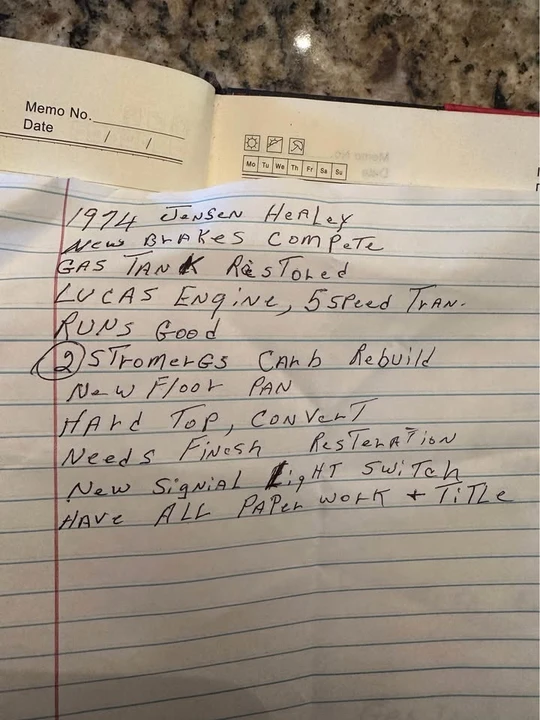 Memo No.
Date / /
Mo Tu We Th Fr Sa Su
1974 JENSEN HEALEY
NEW BRAKES COMPETE
GAS TANK RESTORED
LUCAS ENGINE, 5 SPEED TRAN.
RUNS GOOD
2 STROMERGS CARB REBUILD
NEW FLOOR PAN
HARD TOP, CONVERT
NEEDS FINESH RESTERATION
NEW SIGNIAL LIGHT SWITCH
HAVE ALL PAPER WORK + TITLE